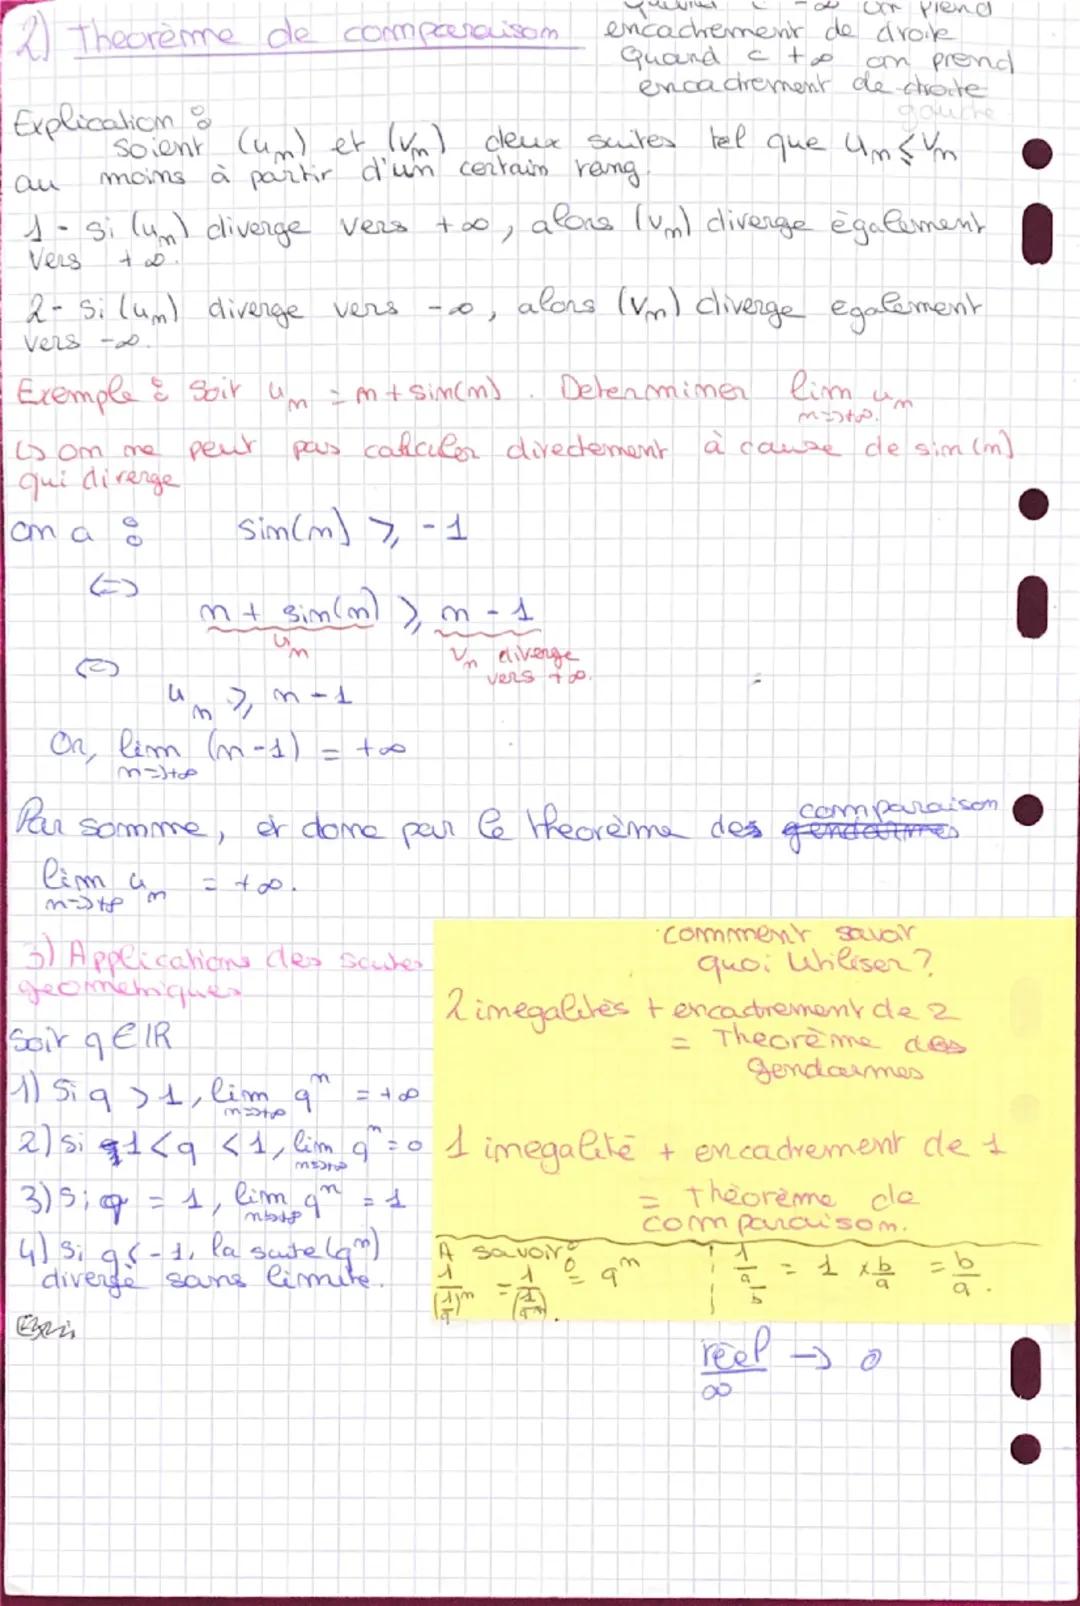 2) Theorème de comparaison
- ∞ on prend
encadrement de droite
Quand c +∞ on prend
encadrement de droite
gauche
Explication :
soient (un) et (vn) deux suites tel que un ≤ vn
au moins à partir d'un certain rang.
1 - si (un) diverge vers +∞, alors (vn) diverge également
vers +∞.
2 - si (un) diverge vers -∞, alors (vn) diverge egalement
vers -∞.
Exemple : Soit un = n + sin(n). Determiner lim un
n→+∞.
↳ on ne peut pas calculer directement à cause de sin(n)
qui diverge
on a : sin(n) ≥ -1
⇔
n + sin(n) ≥ n - 1
un
vn diverge
vers +∞.
⇔
un ≥ n - 1
Or, lim (n-1) = +∞
n→+∞
comparaison
Par somme, et donc par le theorème des gendarmes
lim un = +∞.
n→+∞
3) Applications des suites
geometriques
Soit q ∈ IR
1) Si q > 1, lim qⁿ = +∞
n→+∞
2) Si -1 < q < 1, lim qⁿ = 0
n→+∞
3) Si q = 1, lim qⁿ = 1
n→+∞
4) Si q ≤ -1, la suite (qⁿ)
diverge sans limite.
comment savoir
quoi utiliser ?
2 inegalités + encadrement de 2
= Theorème des
gendarmes
1 inegalité + encadrement de 1
= théorème de
comparaison.
A savoir :
1/(1/q)ⁿ = 1/(1/qⁿ) = qⁿ
1/(a/b) = 1 × b/a = b/a.
réel/∞ → 0